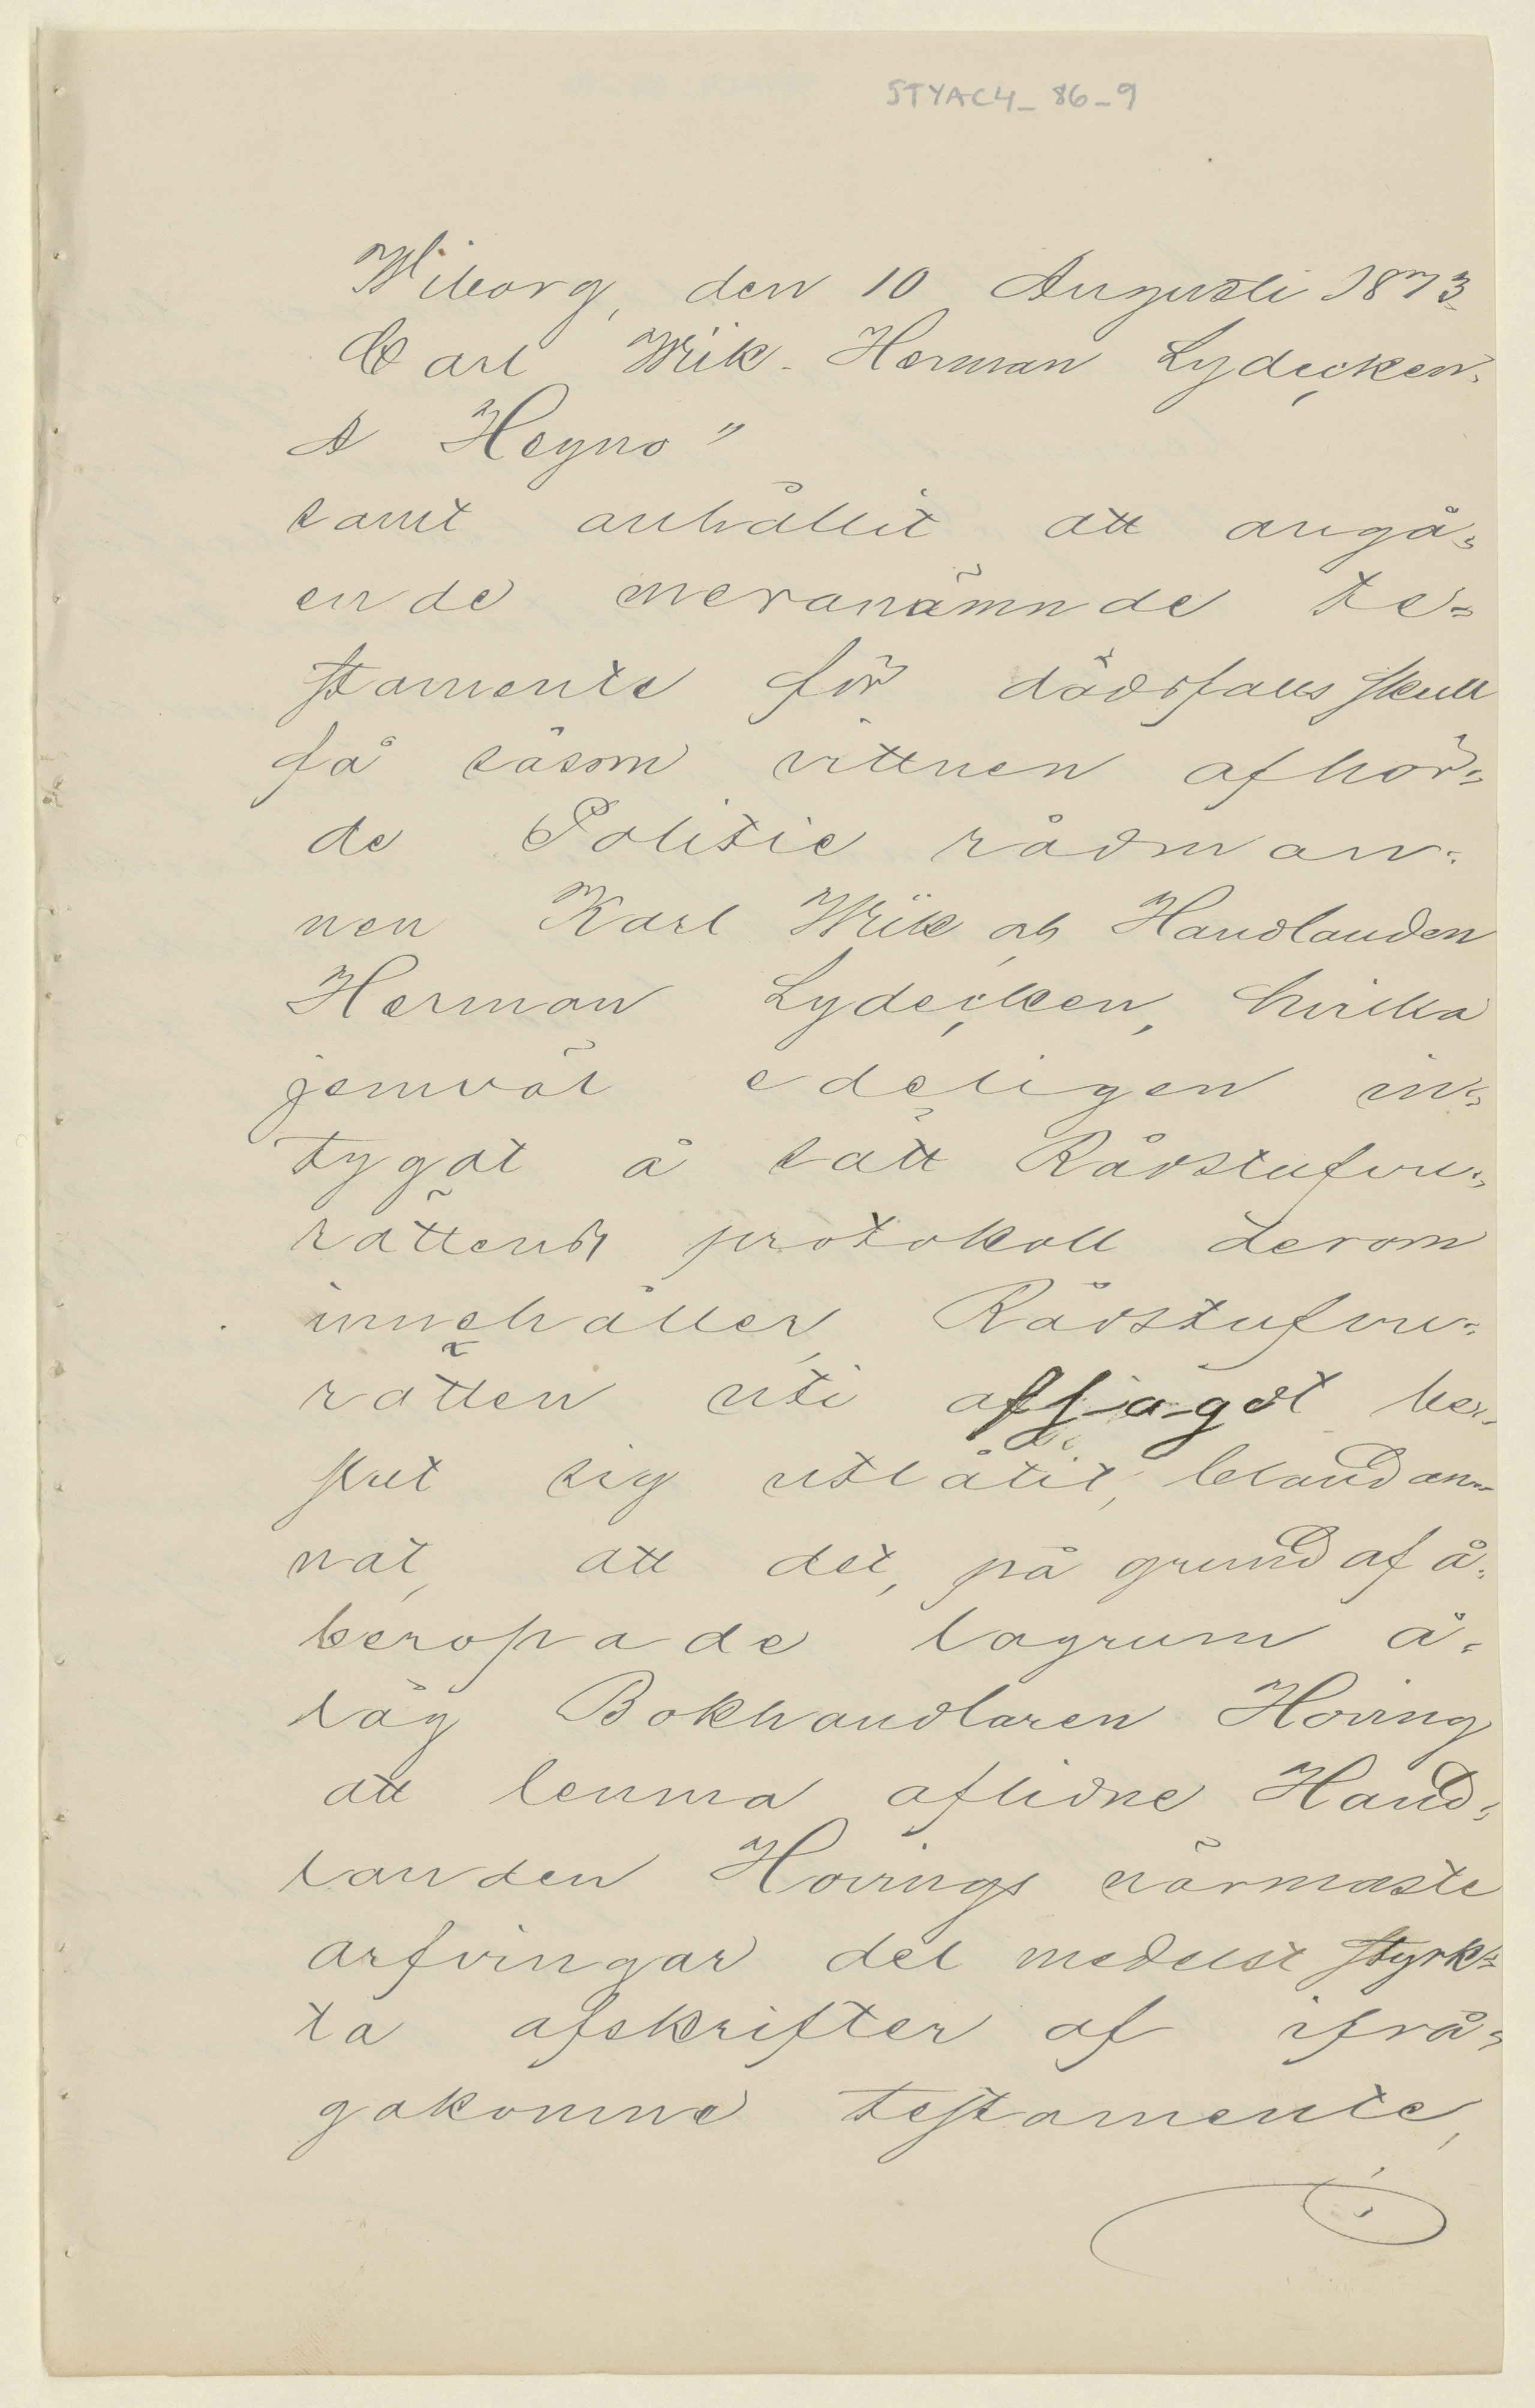 STYAC4_86_9
Wiborg, den 10 Augusti 1873
Carl Wiik - Herman Lydecken.
A Heyno"
samt anhållit att angå=
ende meranämnde te=
stamente för dödsfalls skull
få såsom vittnen afhör=
de Politie rådman=
nen Karl Wiik och Handlanden
Herman Lydecken, hvilka
jemväl edeligen in=
tygat å sätt Rådstufvu=
rättens protokoll derom
innehåller, Rådstufvu=
rätten uti afsagdt be=
slut sig utlåtit, bland an=
nat, att det, på grund af å=
beropade lagrum å=
låg Bokhandlaren Hoving
att lemna aflidne Hand=
landen Hovings närmaste
arfvingar del medelst styrk=
ta afskrifter af ifrå=
gakomne testamente,